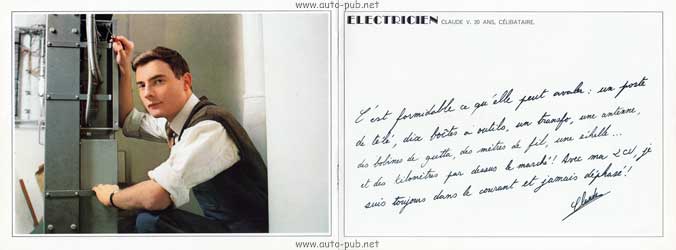 www.auto-pub.net
ELECTRICIEN CLAUDE V. 20 ANS, CÉLIBATAIRE.
C'est formidable ce qu'elle peut avaler : un poste
de télé, dix boîtes à outils, un transfo, une antenne,
des bobines de gutta, des mètres de fil, une échelle...
et des kilomètres par dessus le marché ! Avec ma 2 CV, je
suis toujours dans le courant et jamais déphasé !
Claude
www.auto-pub.net